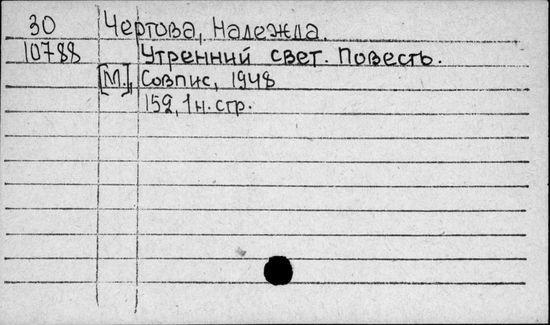 30 Чертова, Надежда.
10788 Утренний свет. Повесть.
[М.], Совпис, 1948
152, 1 н. стр.